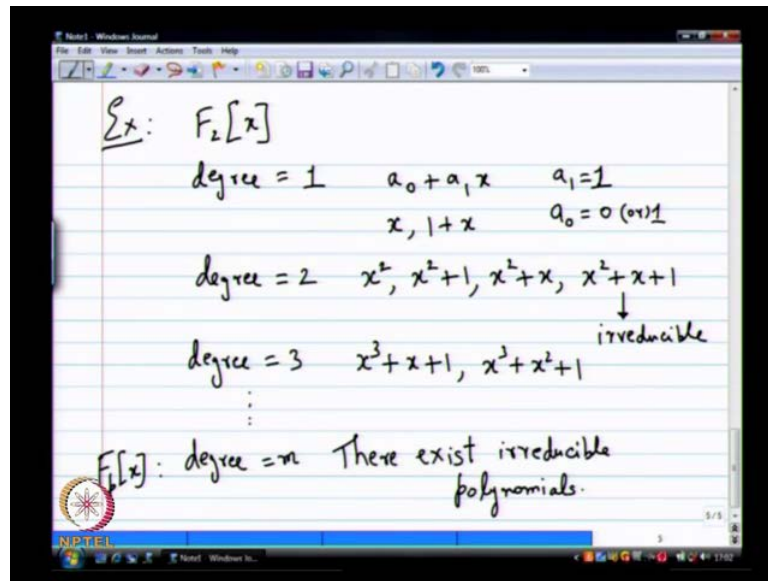 Note1 - Windows Journal
File Edit View Insert Actions Tools Help
100%
Ex: F₂[x]
degree = 1 a₀ + a₁x a₁ = 1
x, 1+x a₀ = 0 (or) 1
degree = 2 x², x²+1, x²+x, x²+x+1
↓
irreducible
degree = 3 x³+x+1, x³+x²+1
⋮
Fₚ[x]: degree = m There exist irreducible
polynomials.
5/5
5
NPTEL
Note1 - Windows Jo...
17:02